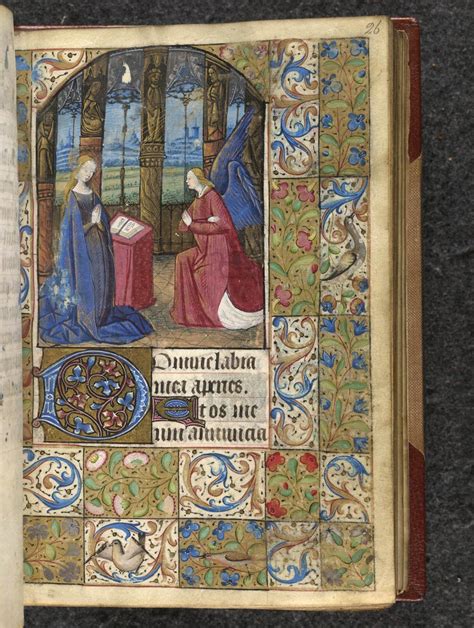 26
Domine labia
mea aperies.
Et os me
um annuncia